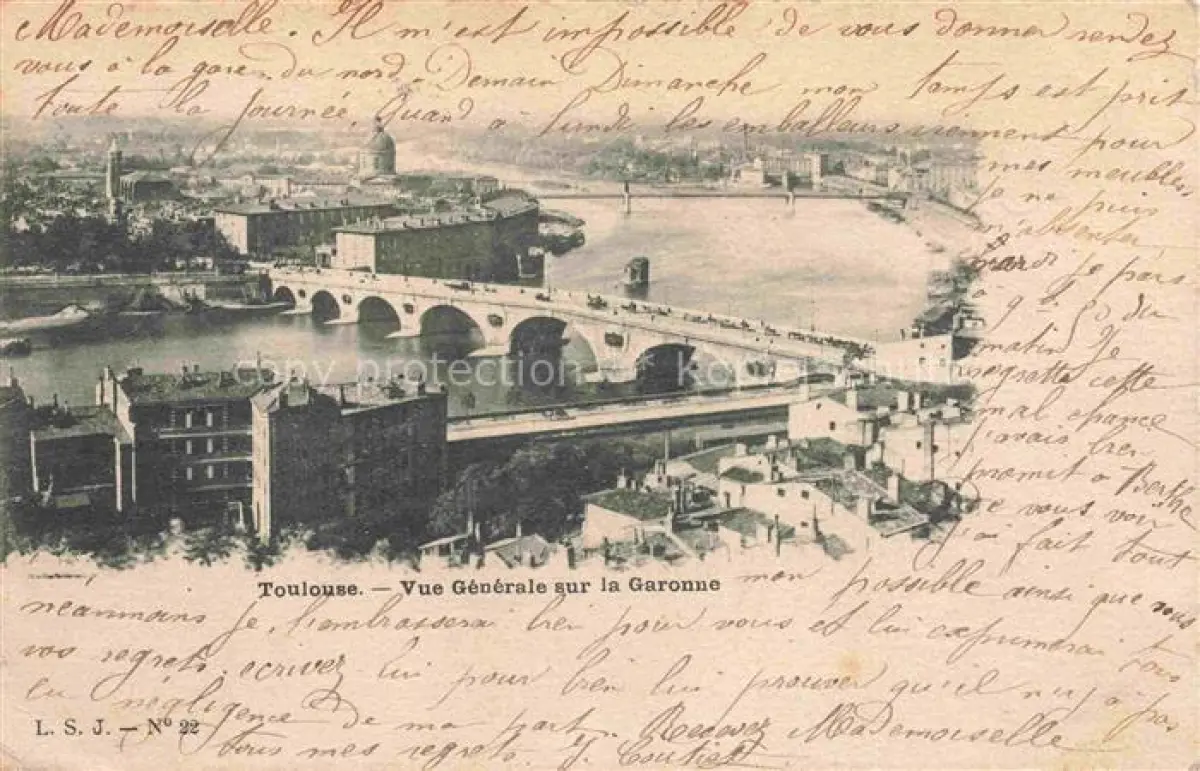 Mademoiselle. Il m'est impossible de vous donner rendez
vous à la gare du nord. Demain Dimanche mon temps est prit
toute la journée. Quand à lundi les emballeurs viennent pour
mes meubles
je ne puis
m'absenter
Mardi je pars
à du
matin. Je
regrette cette
mal chance
j'avais bien
promit à Berthe
de vous voir
j'ai fait tout
mon possible ainsi que vous
neanmoins je l'embrasserai bien pour vous et lui exprimerai tous
vos regrets. ecrivez lui pour bien lui prouver qu'il n'y a pas
eu négligence de ma part. Recevez Mademoiselle
tous mes regrets.
copy protection
Toulouse. — Vue Générale sur la Garonne
L. S. J. — Nº 22